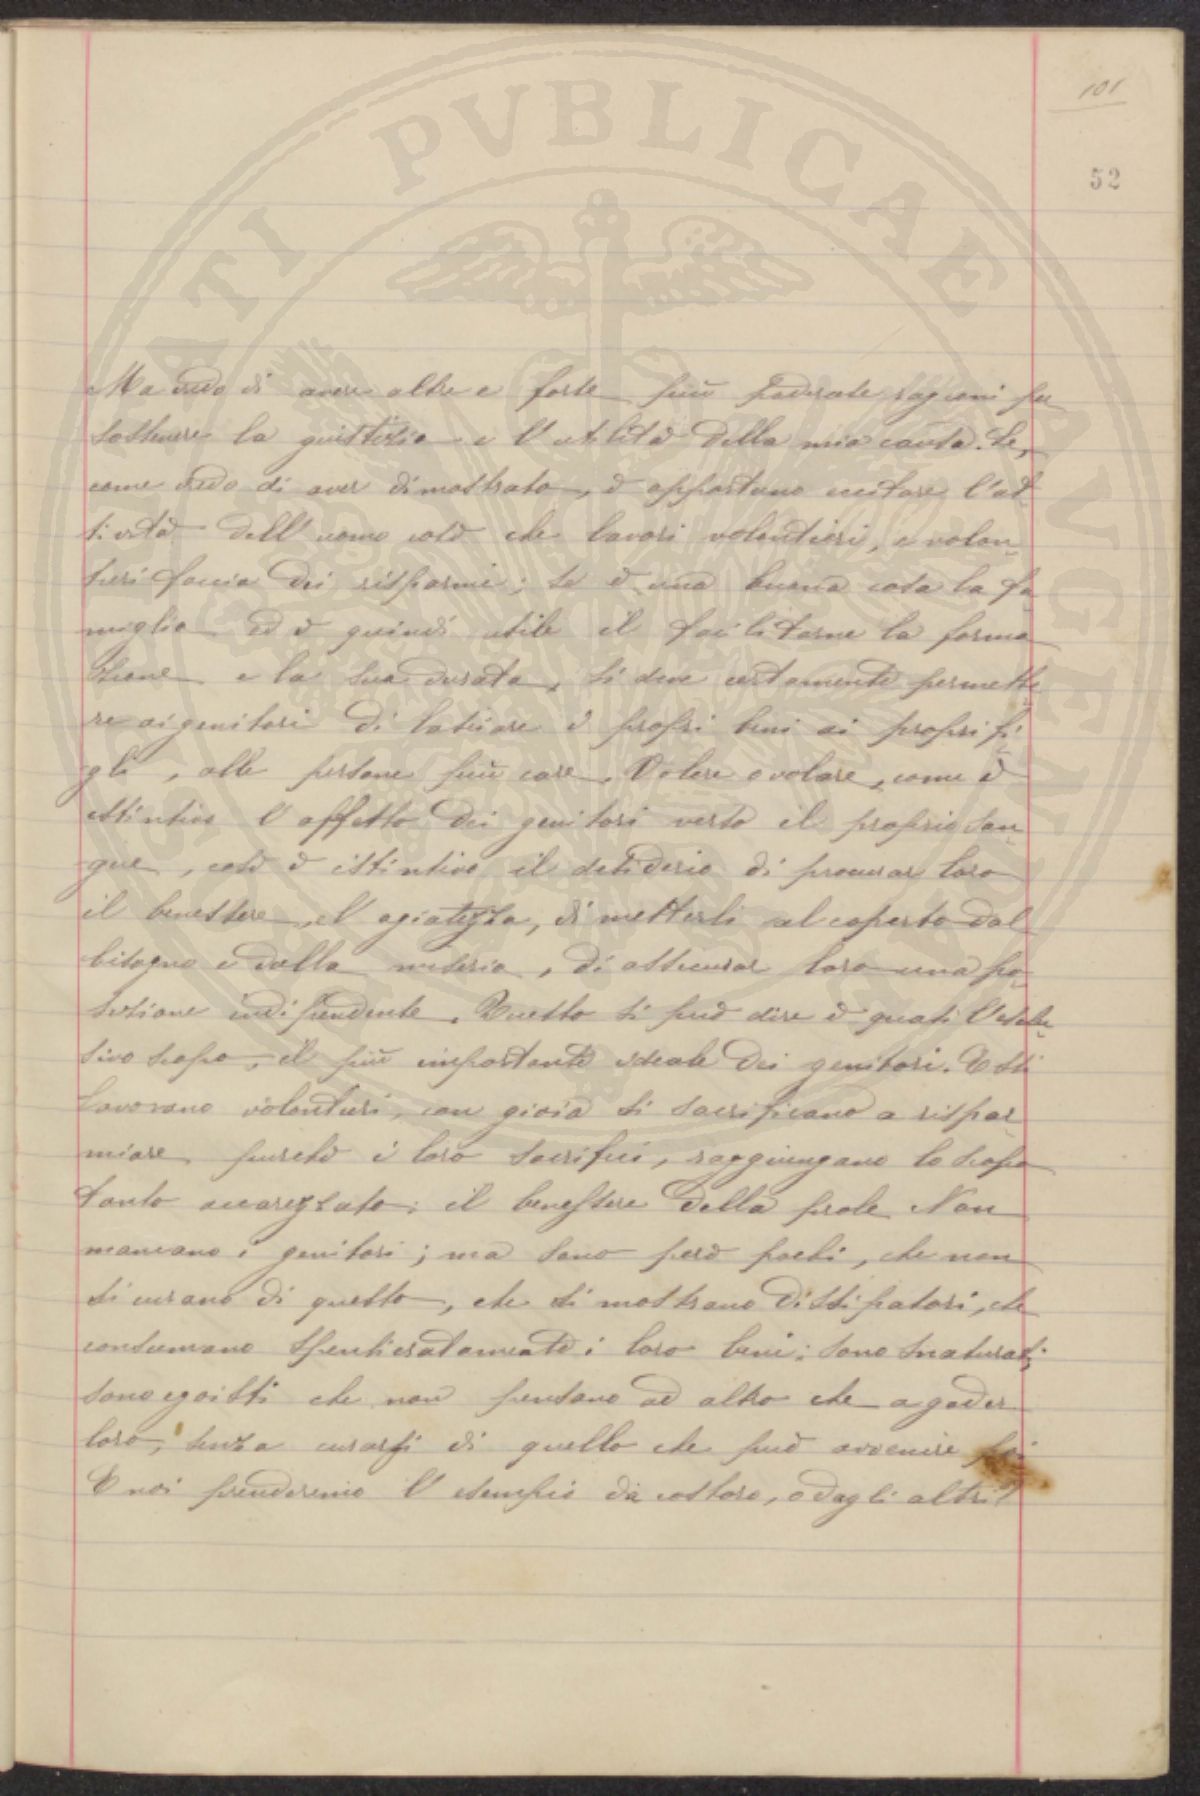 101
52
Ma credo di avere altre e forse più poderate ragioni per
sostenere la giustizia e l'utilità della mia causa. Se,
come credo di aver dimostrato, è opportuno eccitare l'at-
tività dell'uomo così che lavori volentieri, e volen-
tieri faccia dei risparmi; se è una buona cosa la fa-
miglia ed è quindi utile il facilitarne la forma
zione e la sua durata, si deve certamente permette
re ai genitori di lasciare i propri beni ai propri fi-
gli, alle persone più care. Volere o volare, come è
istintivo l'affetto dei genitori verso il proprio san-
gue, così è istintivo il desiderio di procurar loro
il benessere, l'agiatezza, di metterli al coperto dal
bisogno e dalla miseria, di assicurar loro una po-
sizione indipendente. Questo si può dire è quasi l'esclu-
sivo scopo, il più importante ideale dei genitori. Essi
lavorano volentieri, con gioia si sacrificano a rispar-
miare purchè i loro sacrifici, raggiungano lo scopo
tanto accarezzato: il benessere della prole. Non
mancano i genitori; ma sono però pochi, che non
si curano di questo, che si mostrano dissipatori, che
consumano spensieratamente i loro beni: sono snaturati;
sono egoisti che non pensano ad altro che a goder
loro, senza curarsi di quello che può avvenire poi.
E noi prenderemo l'esempio da costoro, o dagli altri?
PVBLICAE